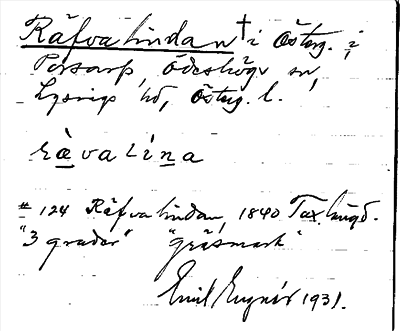 Räfvalindan † i Österg. i,
Porsarp, Ödeshögs sn,
Lysings hd, Österg. l.
rävalina
# 124 Räfvalindan, 1840 Tax.längd.
"3 grader" "gräsmark"
Emil 1931.